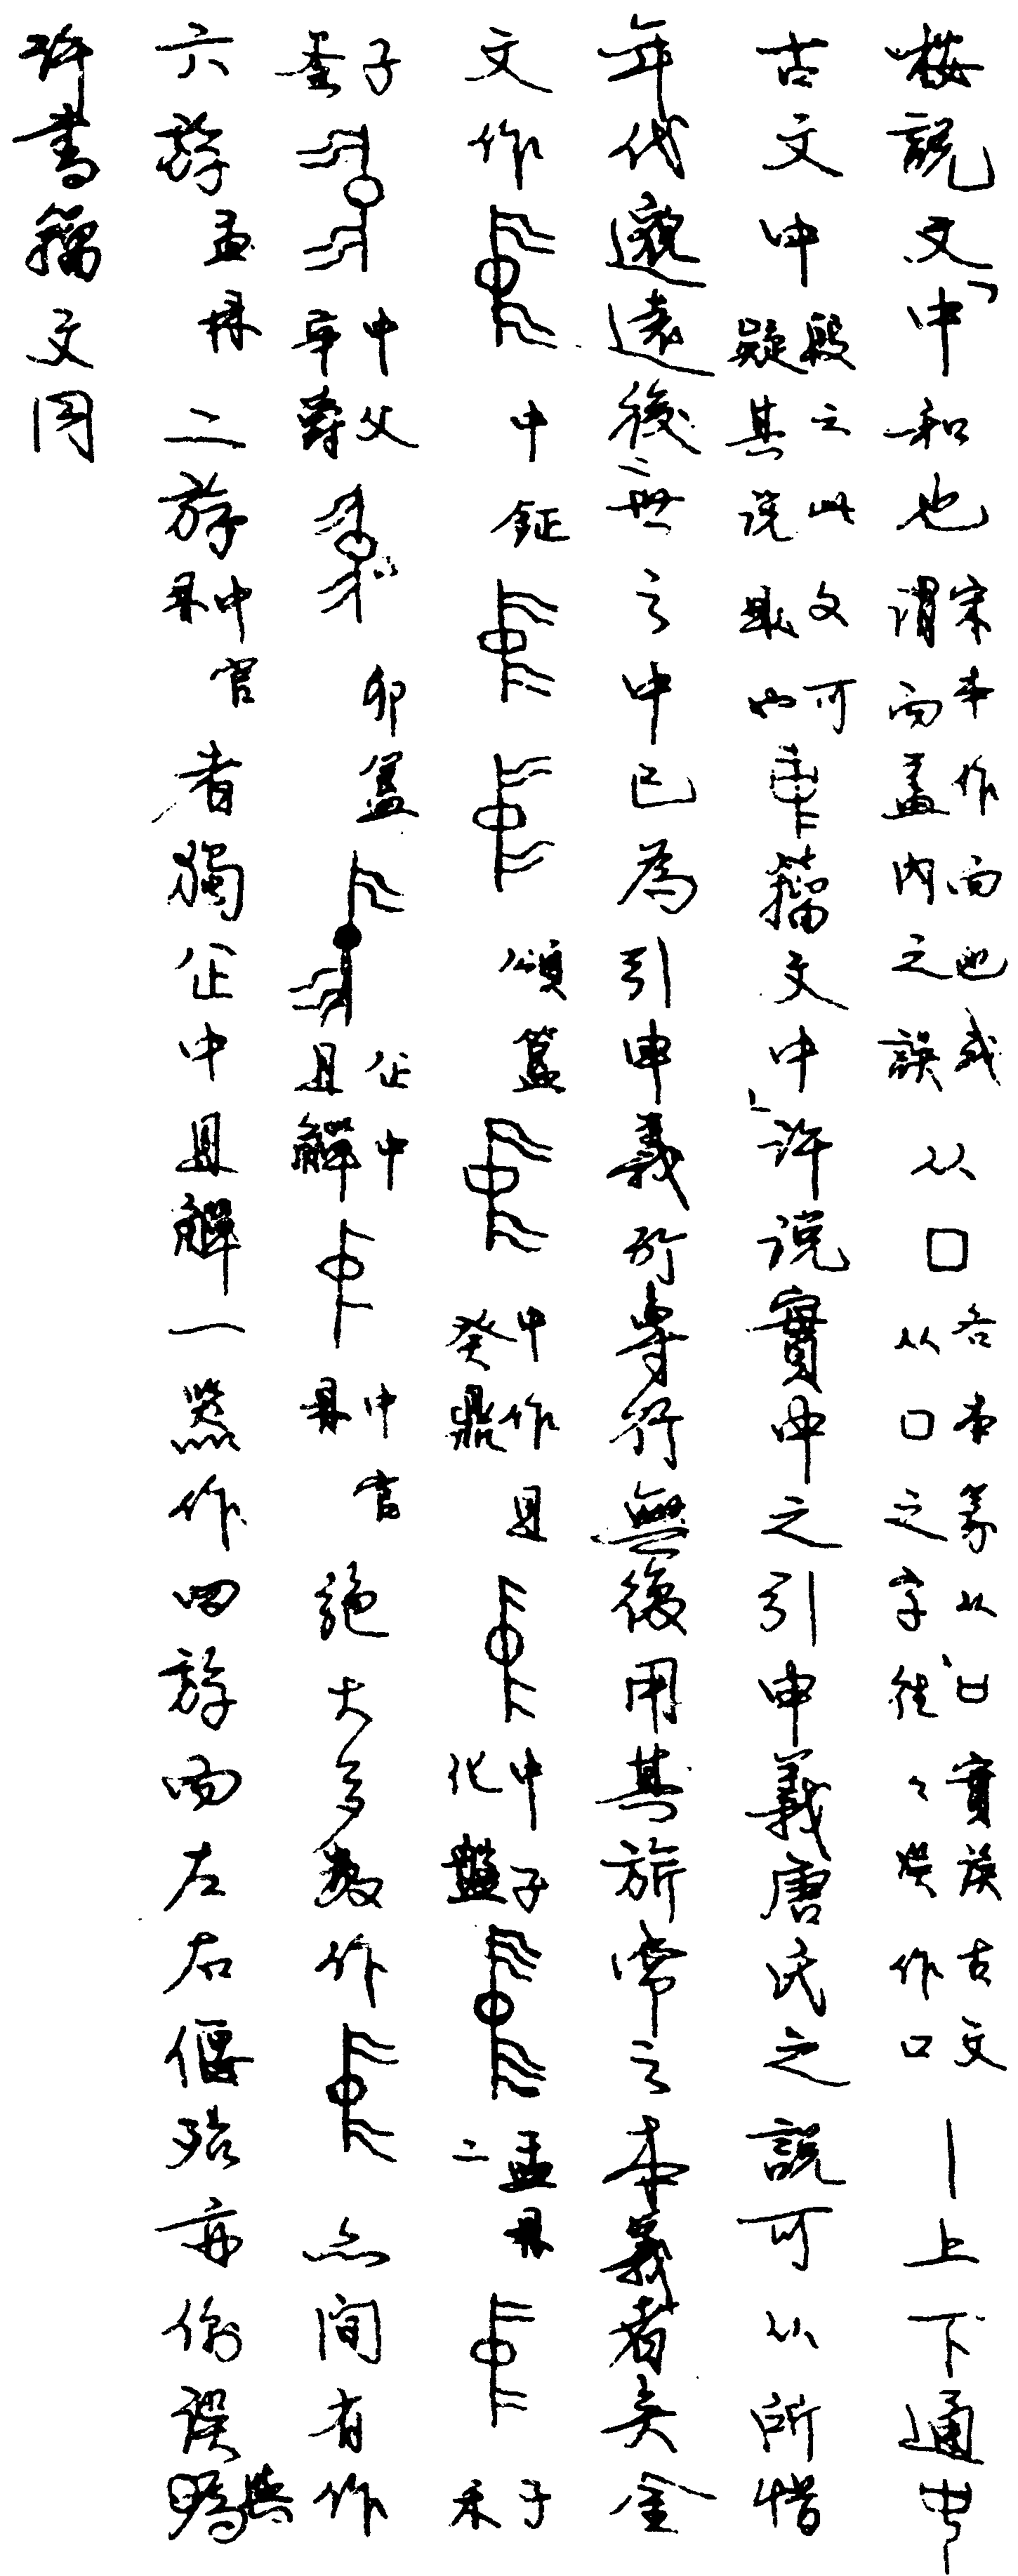 按說文「中和也宋本作而也或謂而蓋內之誤从口各本篆从口實誤古文从口之字往々誤作口丨上下通
古文中段之此文可疑其說是也籀文中」許說實中之引申義唐氏之說可从所惜
年代邈遠後世之中已為引申義所專行無復用其旂常之本義者矣金
文作中鉦頌簋中作且癸鼎中子化盤盂鼎二子禾
子釜中父辛爵卯簋㱏中且觶中官鼎絕大多數作亦間有作
六斿盂鼎二斿中官鼎者獨㱏中且觶一器作四斿而左右偃殆亦偶誤與
許書籀文同